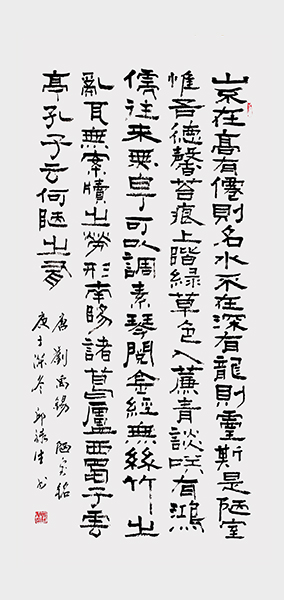 山不在高有僊則名水不在深有龍則靈斯是陋室
惟吾德馨苔痕上階緑草色入簾青談咲有鴻
儒往来無白丁可以調素琴閲金經無絲竹之
亂耳無案牘之勞形南陽諸葛廬西蜀子雲
亭孔子云何陋之有
唐劉禹錫 陋室銘
庚子深冬邱